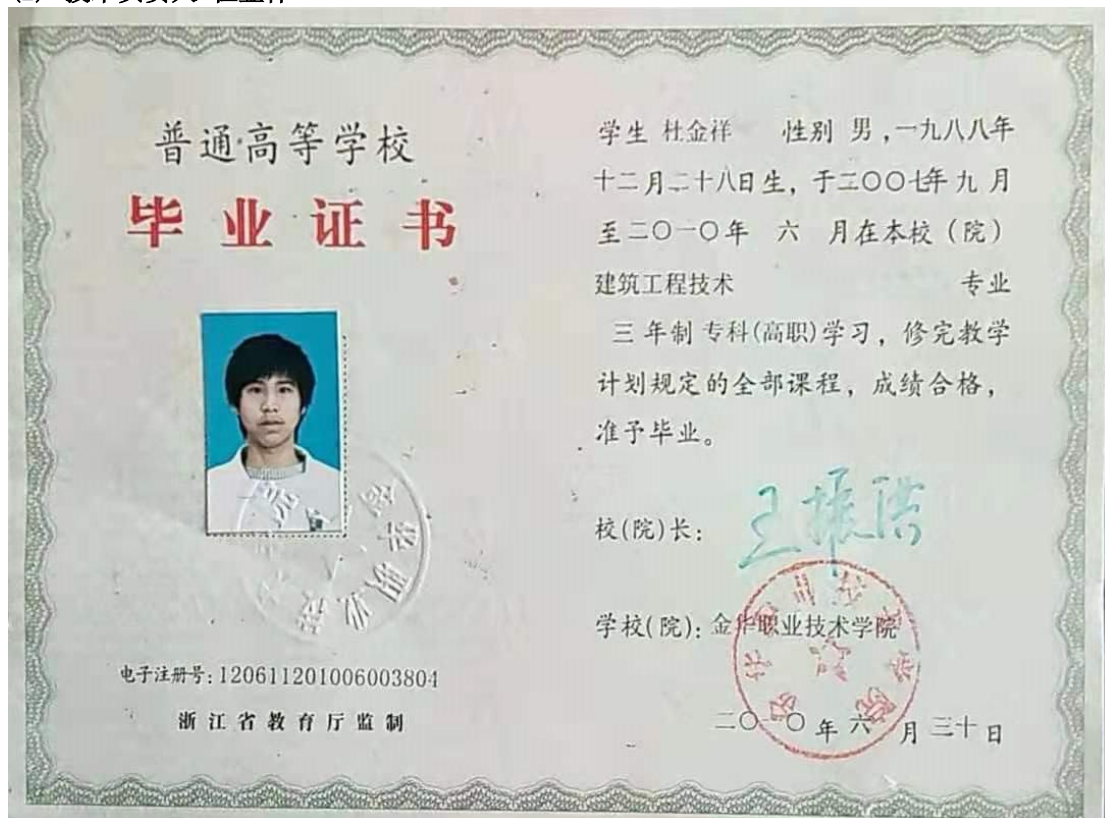 普通高等学校
毕业证书
电子注册号:120611201006003804
浙江省教育厅监制
学生 杜金祥 性别 男,一九八八年
十二月二十八日生,于二〇〇七年九月
至二〇一〇年 六 月在本校(院)
建筑工程技术 专业
三年制 专科(高职)学习,修完教学
计划规定的全部课程,成绩合格,
准予毕业。
校(院)长: 王振洪
学校(院):金华职业技术学院
二〇一〇年六月三十日